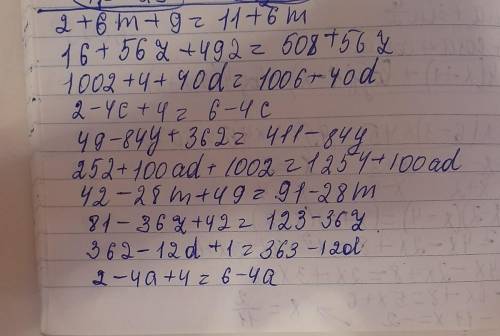 2+6m+9=11+6m
16+56z+492=508+56z
1002+4+40d=1006+40d
2-4c+4=6-4c
49-84y+362=411-84y
252+100ad+1002=1254+100ad
42-28m+49=91-28m
81-36z+42=123-36z
362-12d+1=363-12d
2-4a+4=6-4a